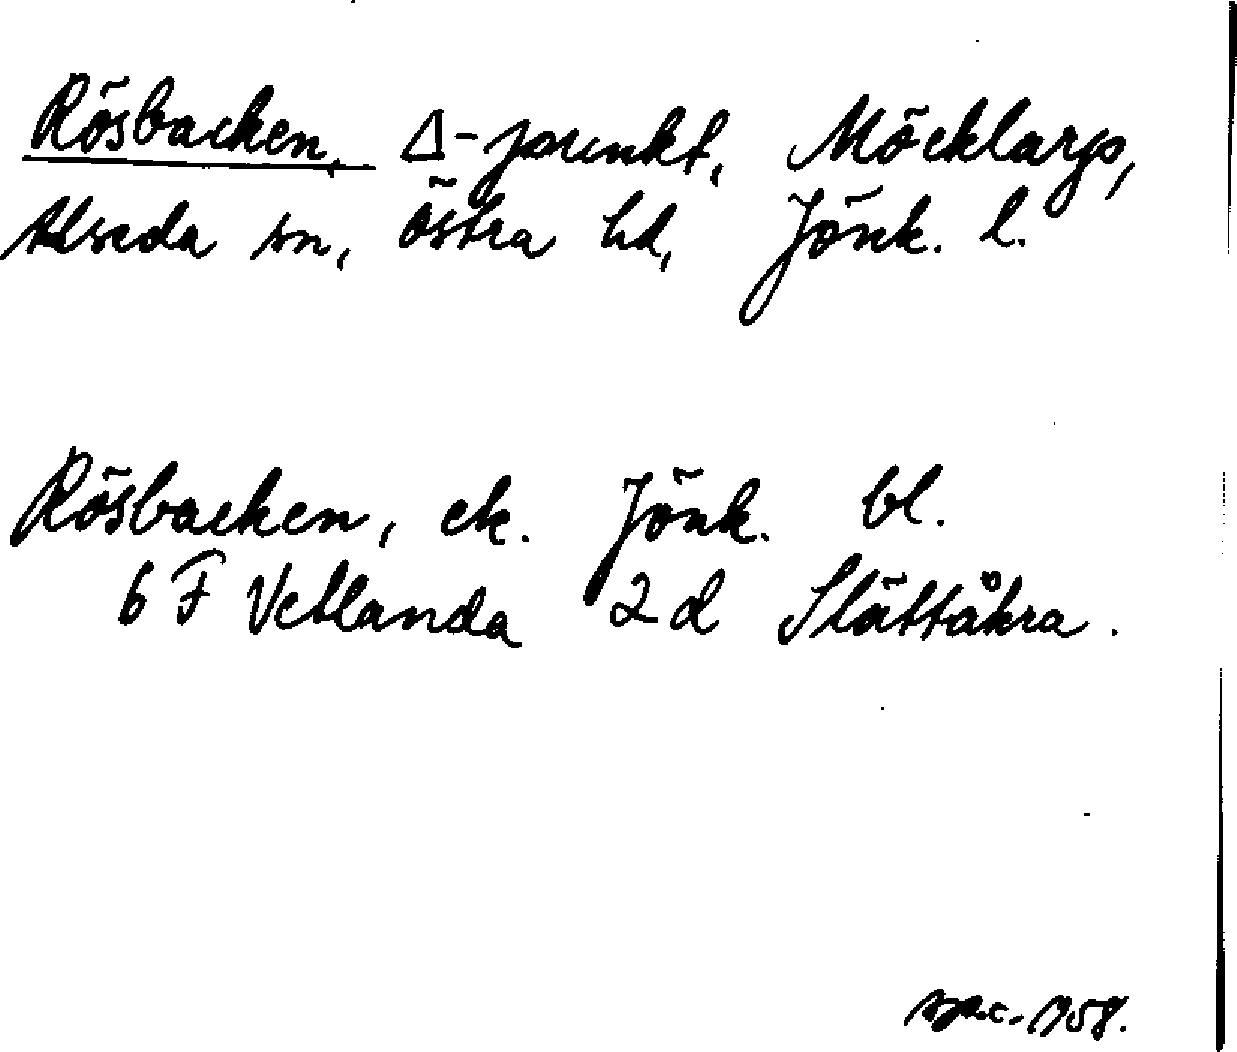 Rösbacken, Δ-punkt, Möcklarps,
Alseda sn, Östra hd, Jönk. l.
Rösbacken, ek. Jönk. bl.
6 F Vetlanda 2 d Slättåkra.
1958.